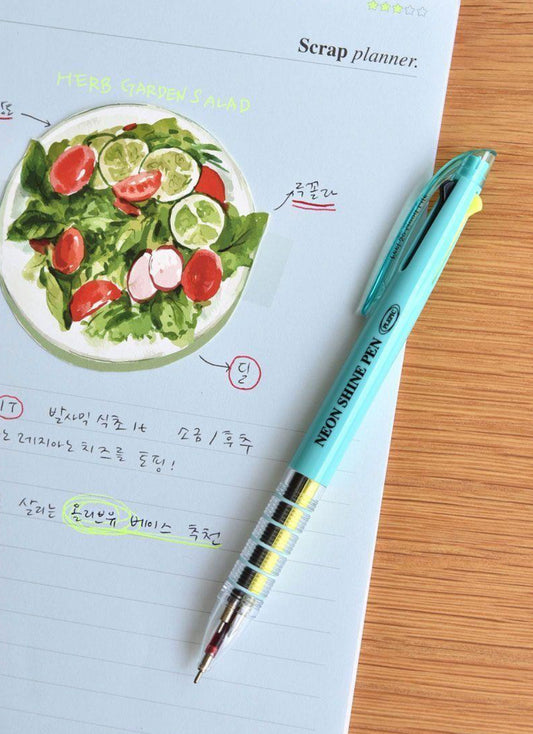 Scrap planner.
HERB GARDEN SALAD
루꼴라
딜
1T 발사믹 식초 1t 소금 / 후추
노 레지아노 치즈를 토핑!
살리는 올리브유 베이스 추천
NEON SHINE PEN
PLEPIC